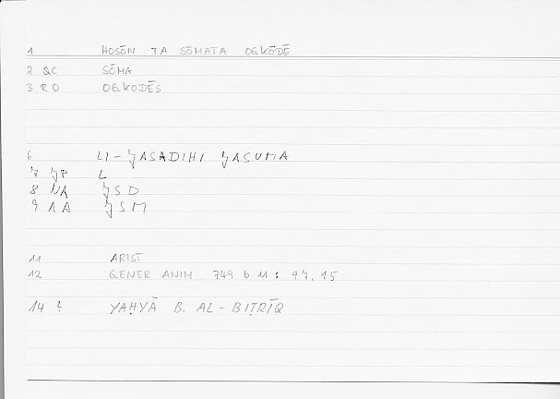 1 HOSŌN TA SŌMATA OGKŌDĒ
2 QC SŌMA
3 RO OGKODĒS
6 LI-ǦASADIHI ǦASUMA
7 ǦP L
8 NA ǦSD
9 AA ǦSM
11 ARIST
12 GENER ANIM 749 b 11 : 97.15
14 YAḤYĀ B. AL-BIṬRĪQ